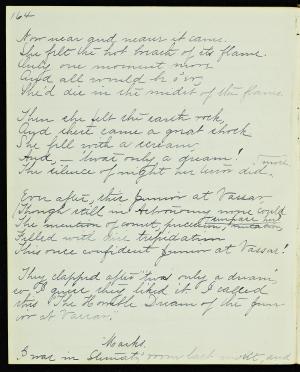 164
Now near and nearer it came.
She felt the hot breath of its flame.
Only one moment more
And all would be o'er,
She'd die in the midst of the flame
Then she felt the earth rock,
And there came a great shock
She fell with a scream,
And, — 'twas only a dream!
The silence of night her terror did.
Ever after, this Junior at Vassar
(Though still in Astronomy none could
surpass her)
The mention of comet,
Filled with dire trepidation
This once confident Junior at Vassar!
They clapped after "twas only a dream",
so I guess they liked it. I called
this "The Horrible Dream of the Jun-
ior at Vassar."
Marks.
I was in room last night, and